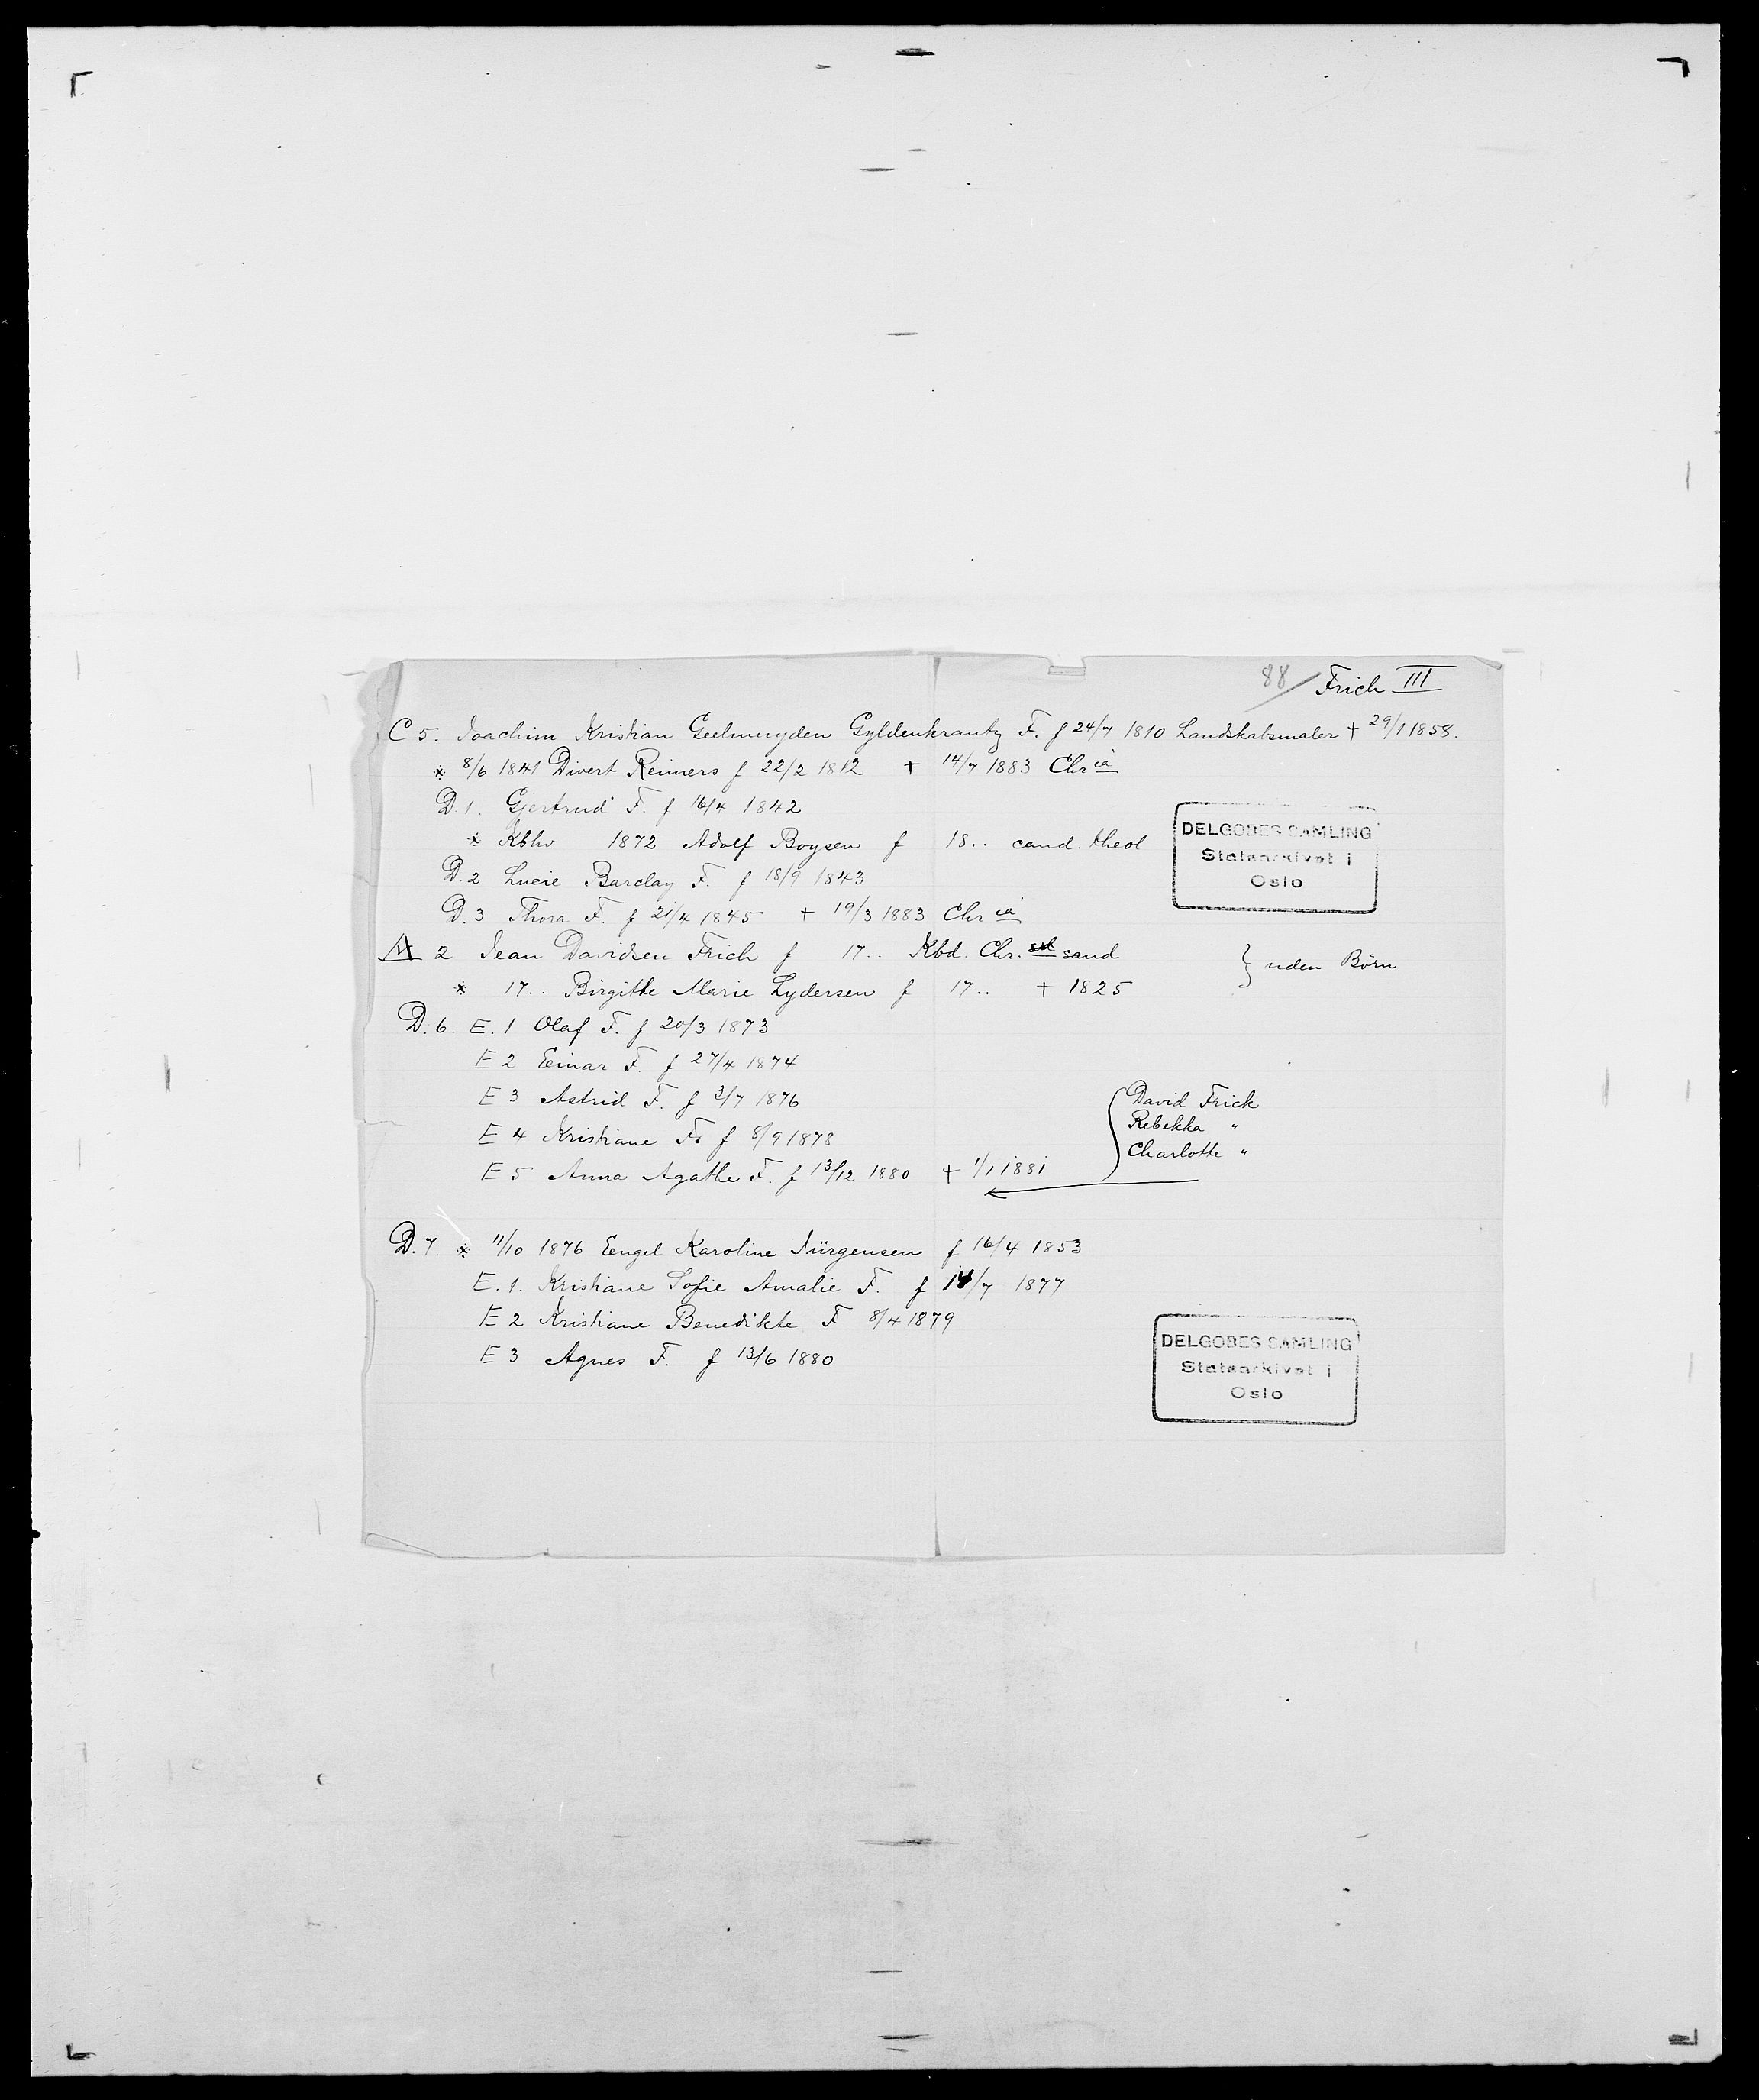 88/ Frich III
C 5. Joachim Kristian Geelmuyden Gyldenkrantz F. f 24/7 1810 Landskabsmaler † 29/1 1858.
* 8/6 1841 Divert Reimers f 22/2 1812 † 14/7 1883 Chr ia
D.1. Gjertrud F. f 16/4 1842
* Kbhv 1872 Adolf Boysen f 18.. cand. theol
D.2 Lucie Barclay F. f 18/9 1843
D.3 Thora F. f 21/4 1845 † 19/3 1883 Chr ia
DELGOBES SAMLING
Statsarkivet i
Oslo
A 2 Jean Davidsen Frich f 17.. Kbd. Chr. sand } uden Börn
* 17.. Birgitte Marie Lydersen f 17.. † 1825
D.6. E.1 Olaf F. f 20/3 1873
E 2 Einar F. f 27/4 1874
E 3 Astrid F. f 3/7 1876
E 4 Kristiane F. f 8/9 1878
E 5 Anna Agathe F. f 13/12 1880 † 1/1 1881
David Frich
Rebekka "
Charlotte "
D.7. * 11/10 1876 Engel Karoline Jürgensen f 16/4 1853
E.1. Kristiane Sofie Amalie F. f 14/7 1877
E 2 Kristiane Benedikte F 8/4 1879
E 3 Agnes F. f 13/6 1880
DELGOBES SAMLING
Statsarkivet i
Oslo